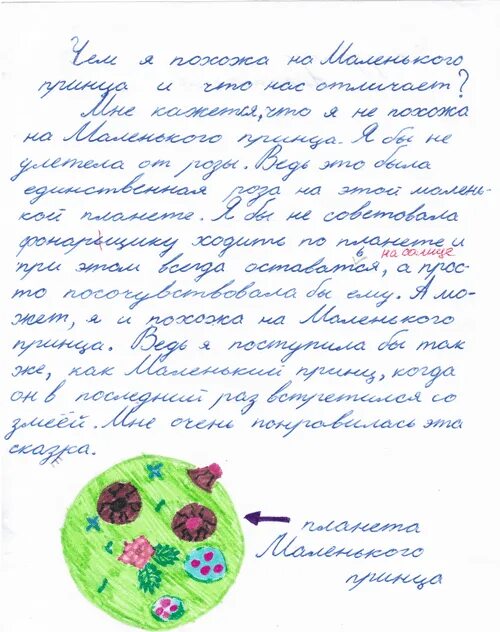 Чем я похожа на Маленького
принца и что нас отличает?
Мне кажется, что я не похожа
на Маленького принца. Я бы не
улетела от розы. Ведь это была
единственная роза на этой малень-
кой планете. Я бы не советовала
фонарщику ходить по планете и
при этом всегда оставаться на солнце, а прос-
то посочувствовала бы ему. А мо-
жет, я и похожа на Маленького
принца. Ведь я поступила бы так
же, как Маленький принц, когда
он в последний раз встретился со
змеёй. Мне очень понравилась эта
сказка.
планета
Маленького
принца